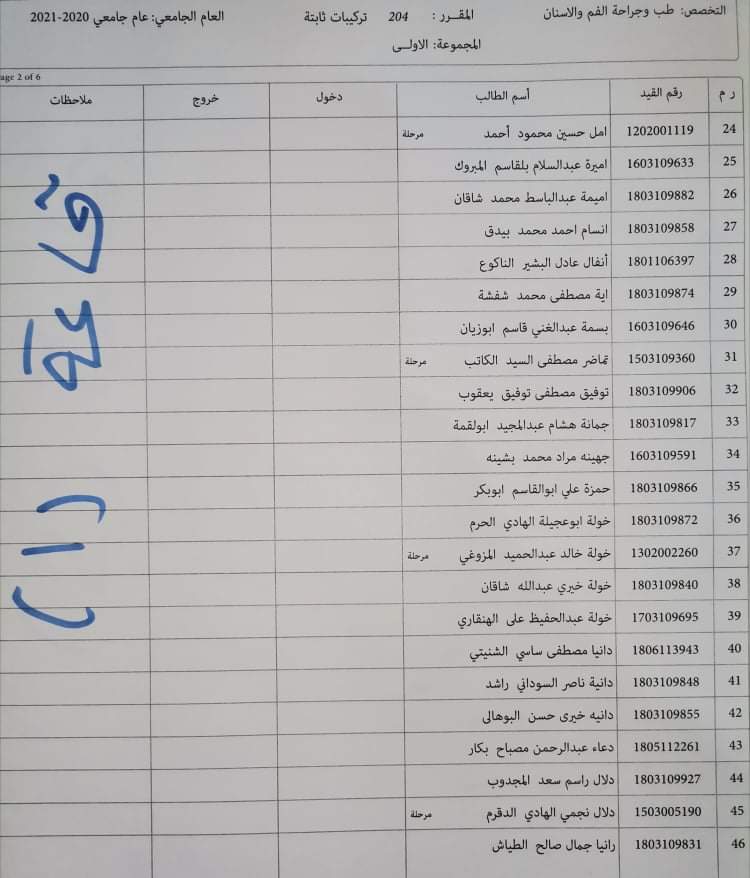 التخصص: طب وجراحة الفم والاسنان المقــرر : 204 تركيبات ثابتة العام الجامعي: عام جامعي 2020-2021
المجموعة: الاولــى
age 2 of 6
ر م رقم القيد أسم الطالب دخول خروج ملاحظات
24 1202001119 امل حسين محمود أحمد مرحلة
25 1603109633 اميرة عبدالسلام بلقاسم المبروك
26 1803109882 اميمة عبدالباسط محمد شاقان
27 1803109858 انسام احمد محمد بيدق
28 1801106397 أنفال عادل البشير الناكوع
29 1803109874 اية مصطفى محمد شفشة
30 1603109646 بسمة عبدالغني قاسم ابوزيان
31 1503109360 تماضر مصطفى السيد الكاتب مرحلة
32 1803109906 توفيق مصطفى توفيق يعقوب
33 1803109817 جمانة هشام عبدالمجيد ابولقمة
34 1603109591 جهينه مراد محمد بشينه
35 1803109866 حمزة علي ابوالقاسم ابوبكر
36 1803109872 خولة ابوعجيلة الهادي الحرم
37 1302002260 خولة خالد عبدالحميد المزوغي مرحلة
38 1803109840 خولة خيري عبدالله شاقان
39 1703109695 خولة عبدالحفيظ على الهنقاري
40 1806113943 دانيا مصطفى ساسي الشنيتي
41 1803109848 دانية ناصر السوداني راشد
42 1803109855 دانيه خيرى حسن البوهالى
43 1805112261 دعاء عبدالرحمن مصباح بكار
44 1803109927 دلال راسم سعد المجدوب
45 1503005190 دلال نجمي الهادي الدقرم مرحلة
46 1803109831 رانيا جمال صالح الطياش
(1)